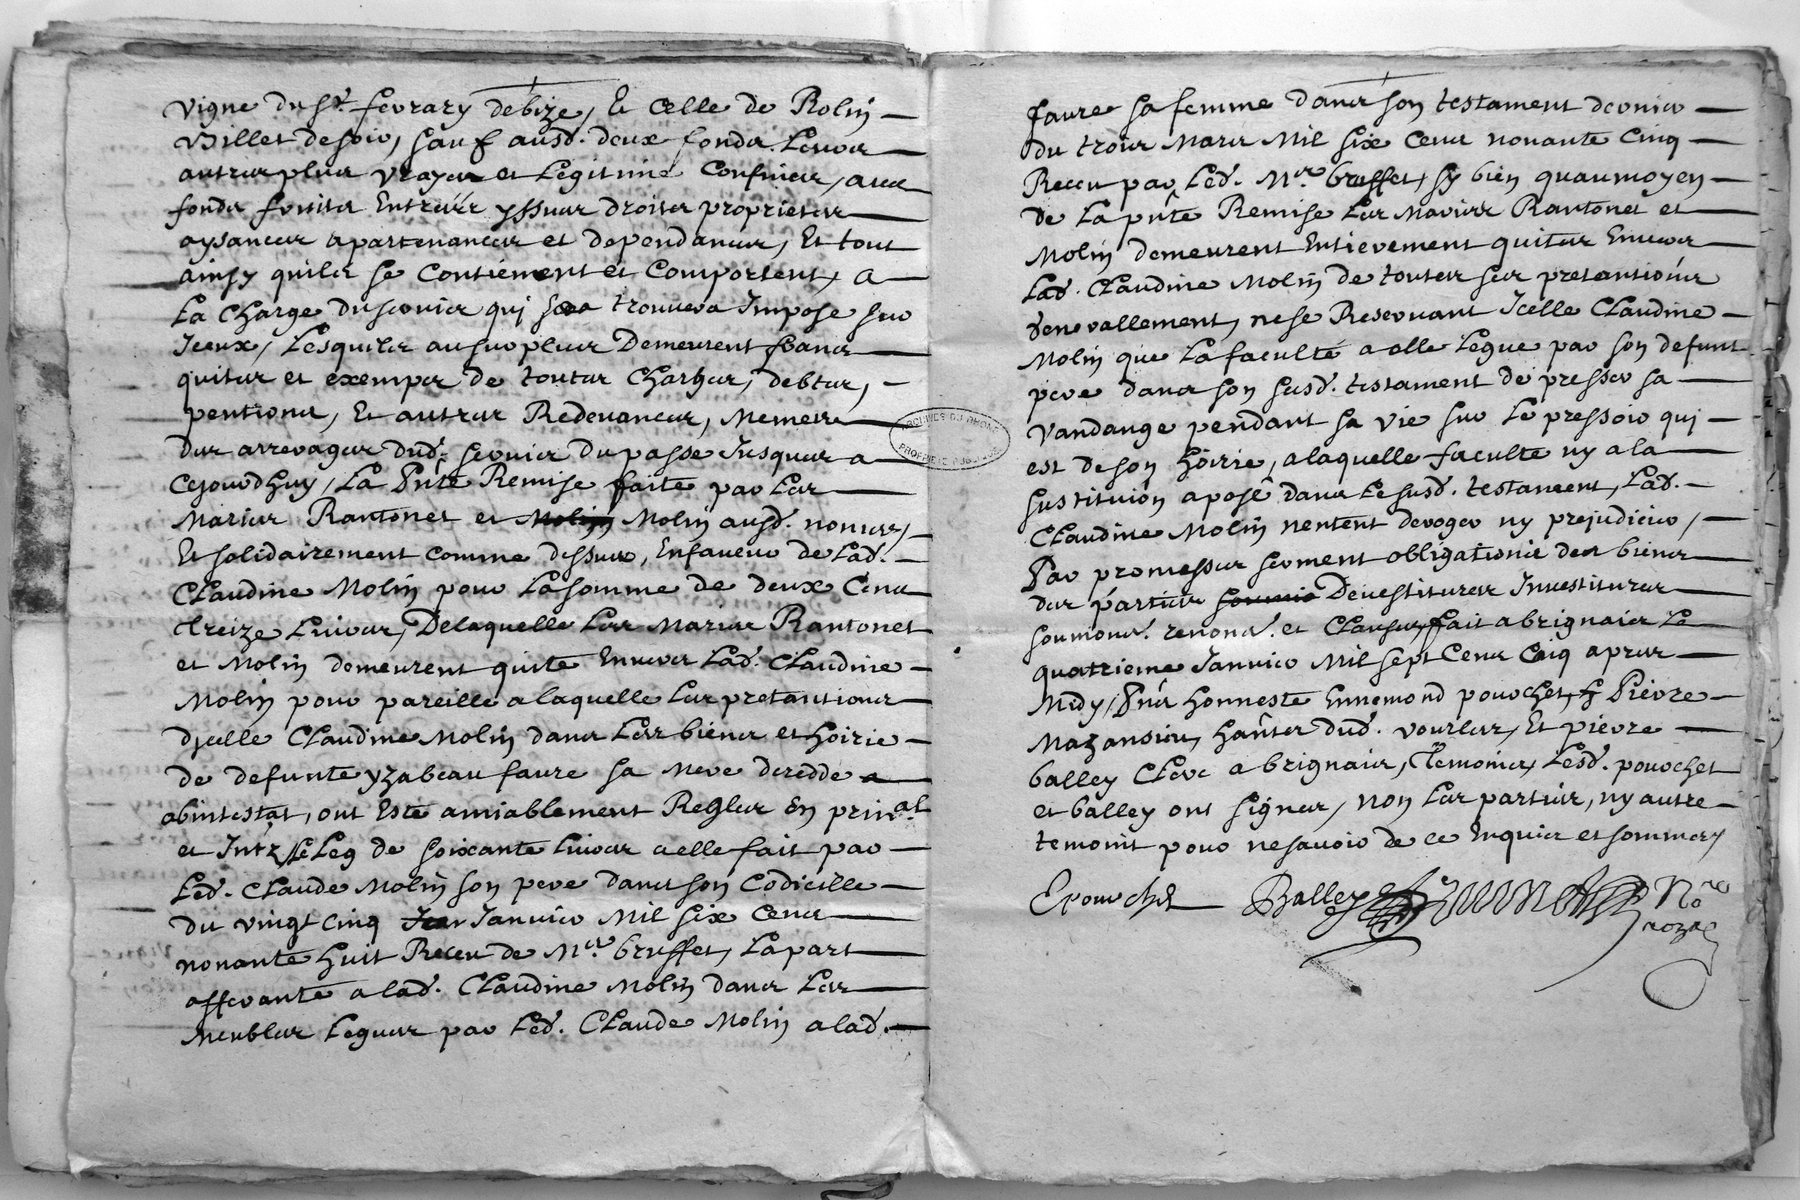 vigne du sr. fevrary debize, Et Celle de Rolin
Billet de soir, sauf ausd. deux fonds Leurs
autres plus vrayes et Legitimes Confins, avec
fonds fruits Entrées yssues droits proprietes
aysances apartenances et dependances, Et tout
ainsy quils se Contiennent et Comportent, a
La Charge du servis qui se trouvera Impose sur
Iceux, Lesquels au surplus Demeurent francs
quites et exempts de toutes Charges, debtes,
pentions, Et autres Redevances, Memes
des arrerages dud. servis du passe Jusques a
Cejourdhuy, La Pnte Remise faite par Les
Maries Rantonet et Molin ausd. noms,
Et solidairement comme dessus, Enfaveur de Lad.
CLaudine Molin pour La somme de deux Cens
treize Livres, De laquelle Les Maries Rantonet
et Molin demeurent quite Envers Lad. CLaudine
Molin pour pareille a laquelle Les pretantions
djcelle CLaudine Molin dans Les biens et hoirie
de defunte yzabeau faure sa mere decedde
abintestat, ont Este amiablement Regles En prinal
et Intz, Le Leg de soixante Livres a elle fait par
Led. CLaude Molin son pere dans son Codicille
du vingt Cinq Janvier Mil six Cens
nonante huit Receu de Mr. bruffet, La part
afferante a lad. CLaudine Molin dans Les
Meubles Legues par Led. CLaude Molin a lad.
faure sa femme dans son testament dernier
du trois Mars Mil six Cens nonante Cinq
Receu par Led. Mr. bruffet, sy bien quau moyen
de La pnte Remise Les Maries Rantonet et
Molin demeurent Entierement quites Envers
Lad. CLaudine Molin de toutes ses pretantions
Generallement, ne se Reservant Icelle CLaudine
Molin que La faculté a elle Legue par son defunt
pere dans son susd. testament de presser sa
vandange pendant sa vie sur Le pressoir qui
est de son hoirie, a laquelle faculte ny a la
sustituion aposé dans Le susd. testament, Lad.
CLaudine Molin nentent deroger ny prejudicier,
Par promesses serment obligations des biens
des parties Devestitures Investitures
soumons. renons. et Clauses, fait a brignais Le
quatrieme Janvier Mil sept Cens Cinq apres
Midy, Pns honneste Ennemond pourchet, Pierre
Mazansieu, hants dud. vourles, Et pierre
balley CLerc a brignais, temoins, Lesd. pourchet
et balley ont signes, non Les parties, ny autre
temoint pour ne savoir de ce Enquis et sommes
Epourchet Balley
ARCHIVES DU RHONE
PROPRIETE PUBLIQUE